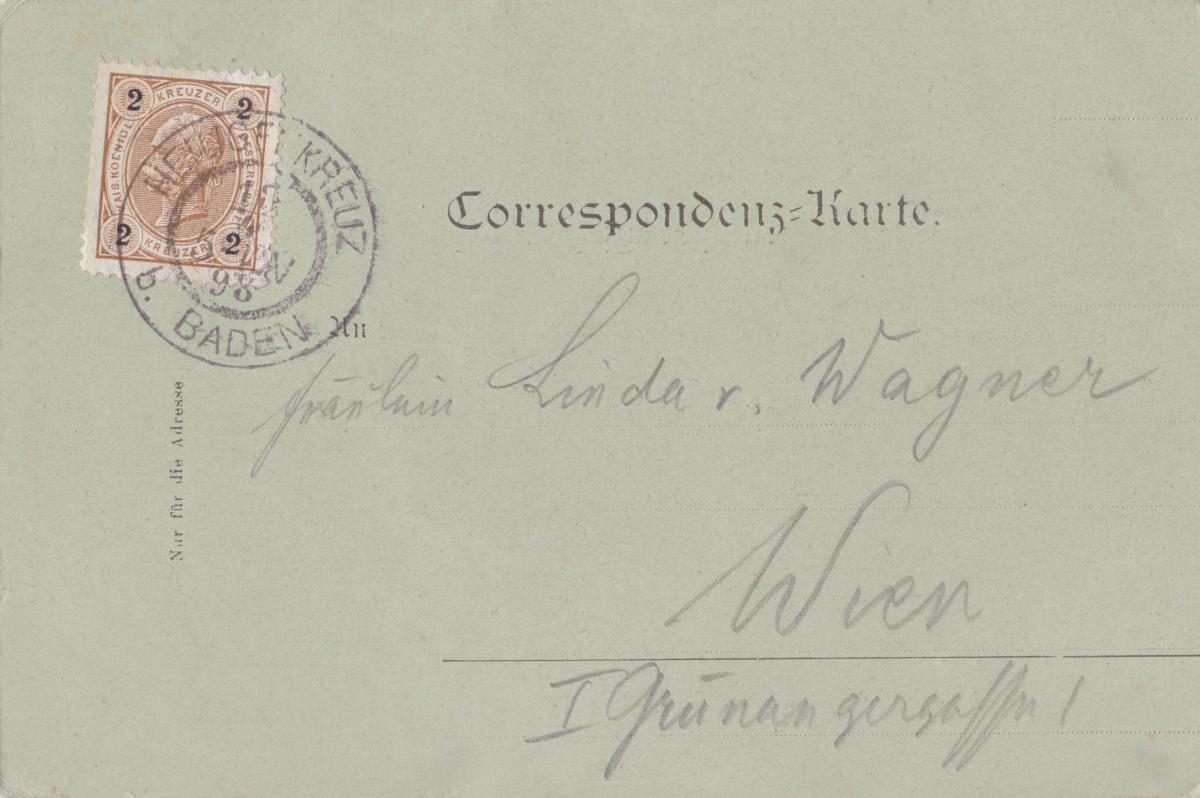 2 KREUZER 2
KAIS.KOENIGL.
2 KREUZER 2
HEILIGEN KREUZ
98
b. BADEN
Correspondenz=Karte.
An
Fräulein Linda v. Wagner
Wien
I Grünangergasse 1
Nur für die Adresse